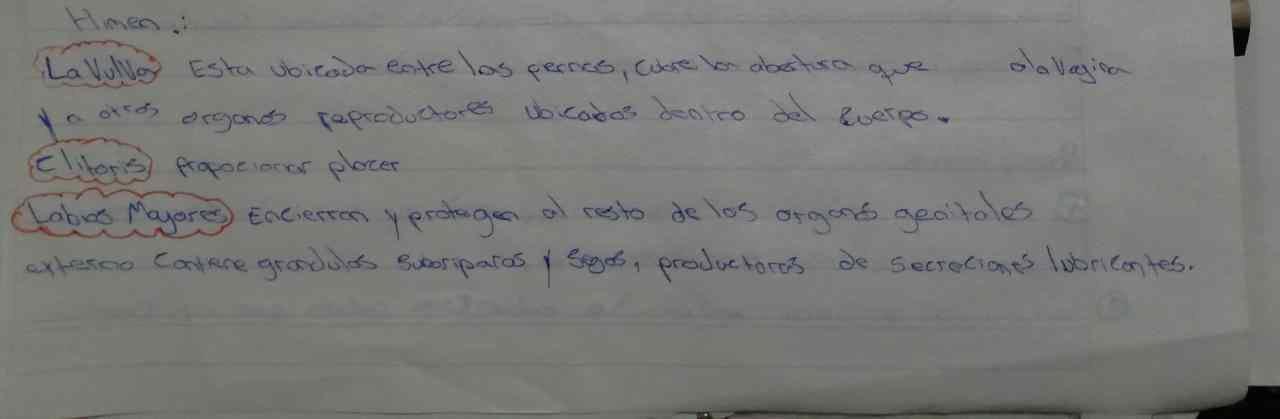 Himen.:
La Vulva Esta ubicada entre las piernas, cubre la abertura que a la vagina
y a otros organos reproductores ubicados dentro del cuerpo.
Clitoris propocionar placer
Labios Mayores Encierran y protegen al resto de los organos genitales
externo Contiene grandulas suboriparas y segas, productoras de secreciones lubricantes.